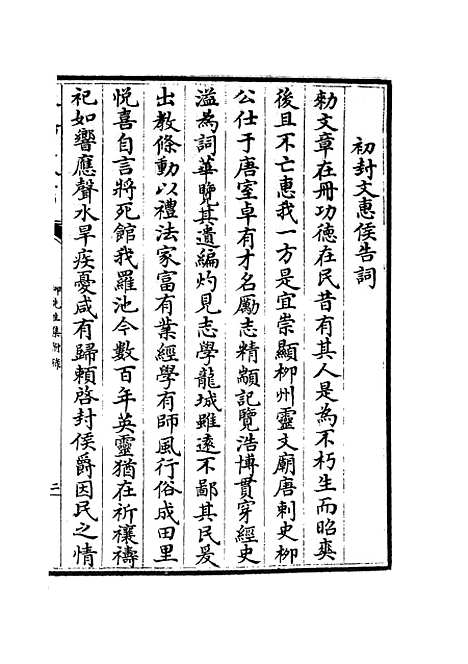 初封文惠侯告詞
勑文章在冊功德在民昔有其人是為不朽生而昭爽
後且不亡惠我一方是宜崇顯柳州靈文廟唐刺史柳
公仕于唐室卓有才名勵志精顓記覽浩博貫穿經史
溢為詞華覽其遺編灼見志學龍城雖遠不鄙其民爰
出教條動以禮法家富有業經學有師風行俗成田里
悅喜自言將死館我羅池今數百年英靈猶在祈禳禱
祀如響應聲水旱疾憂咸有歸賴啓封侯爵因民之情
柳先生集附錄
二